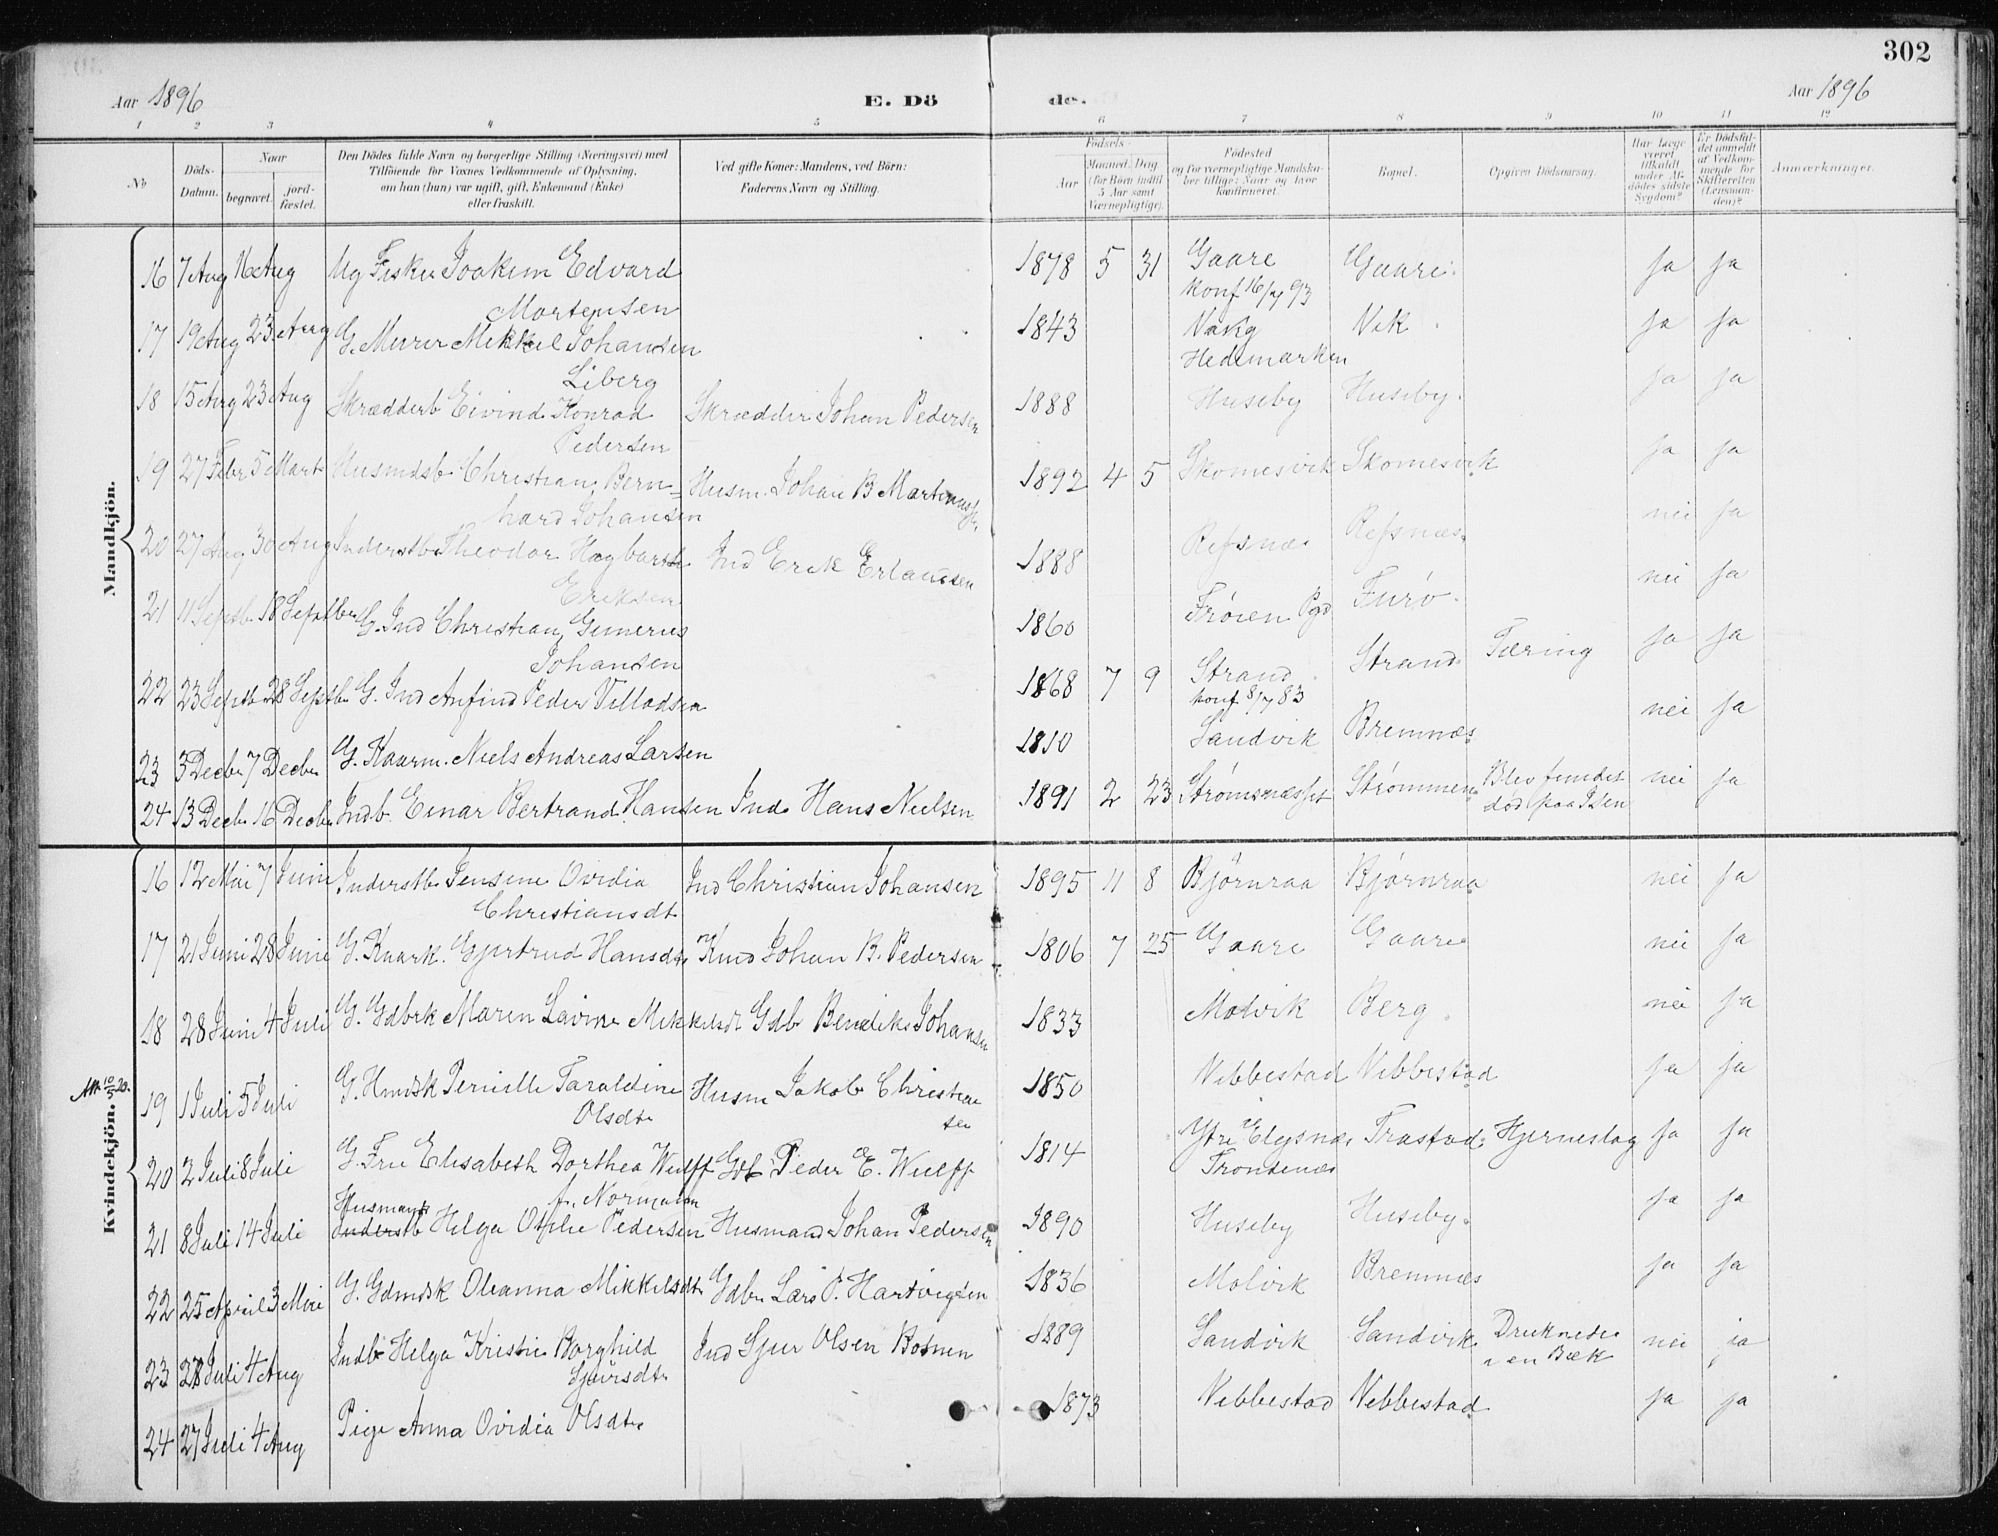 302
Aar 1896 E. Dö de. Aar 1896
1 2 3 4 5 6 7 8 9 10 11 12
No.
Döds-Datum.
Naar
begravet.
jord-fæstet.
Den Dödes fulde Navn og borgerlige Stilling (Næringsvei) med
Tilföiende for Voxnes Vedkommende af Oplysning,
om han (hun) var ugift, gift, Enkemand (Enke)
eller fraskilt.
Ved gifte Koner: Mandens, ved Börn:
Faderens Navn og Stilling.
Födsels-
Aar
Maaned. Dag
(for Börn indtil
5 Aar samt
Værnepligtige).
Födested
og for værnepligtige Mandska-
ber tillige: Naar og hvor
konfirmeret.
Bopæl.
Opgiven Dödsaarsag.
Har Læge
været
tilkaldt
under Af-
dödes sidste
Sygdom?
Er Dödsfal-
det anmeldt
af Vedkom-
mende for
Skifteretten
(Lensman-
den)?
Anmærkninger.
Mandkjön.
16 7 Aug 16 Aug Ug Fisker Joakim Edvard 1878 5 31 Gaare Gaare. ja ja
Mortensen Konf 16/7 93
17 19 Aug 23 Aug G. Murer Mikkel Johansen 1843 Vang Vik ja ja
Liberg Hedemarken
18 15 Aug 23 Aug Skrædderb Eivind Konrad Skrædder Johan Pedersen 1888 Huseby Huseby. ja ja
Pedersen
19 27 Febr 5 Marts Husmdsb Christian Bern- Husm. Johan B Martinussen 1892 4 5 Skomesvik Skomesvik ja ja
hard Johansen
20 27 Aug 30 Aug Inderstb Theodor Hagbarth Ind Erik Erlandsen 1888 Refsnæs Refsnæs. nei ja
Eriksen
21 11 Septb. 18 Septbr G. Ind Christian Gunerius 1860 Frøien Pgd Furø. nei ja
Johansen
22 23 Septb 28 Septb G. Ind Anfind Peder Villadsen 1868 7 9 Strand Strand Tæring ja ja
konf 8/7 83
23 3 Decbr 7 Decbr G. Kaarm. Niels Andreas Larsen 1810 Sandvik Bremnæs nei ja
24 13 Decb 16 Decbr Indb. Einar Bertrand Hansen Ind. Hans Nielsen 1891 2 23 Strømsnæsset Strømmen Blev fundet nei ja
død paa Isen
Kvindekjön.
16 12 Mai 7 Juni Inderstb Jensine Ovidia Ind Christian Johansen 1895 11 8 Bjørnraa Bjørnraa nei ja
Christiansdt
17 21 Juni 28 Juni G. Kaark. Gjertrud Hansdt Johan B. Pedersen 1806 7 25 Gaare Gaare nei ja
18 28 Juni 4 Juli G. Gdbrk Maren Lavine Mikkelsdt Gdb Bendiks Johansen 1833 Molvik Berg. nei ja
19 1 Juli 5 Juli G. Hmdsk Pernille Taraldine Husm Jakob Christian 1850 Vebbestad Vebbestad ja ja
Olsdtr sen
20 2 Juli 8 Juli G. Fru Elisabeth Dorthea Wulff Gdb Peder E. Wulff 1814 Ytre Elgsnæs Trastad. Hjerneslag ja ja
f. Normann Trondenæs
Husmands
21 8 Juli 14 Juli Inderstb Helga Otilie Pedersen Husmand Johan Pedersen 1890 Huseby Huseby. ja ja
22 25 April 3 Mai G. Gdmdsk Oleanna Mikkelsdt Gdbr Lars P. Hartvigsen 1836 Molvik Bremnæs ja ja
23 28 Juli 4 Aug Indb Helga Kristine Borghild Ind Sjur Olsen Botnen 1889 Sandvik Sandvik Druknede nei ja
Sjursdtr i en Bæk
24 27 Juli 4 Aug Pige Anna Ovidia Olsdtr 1873 Vebbestad Vebbestad ja ja